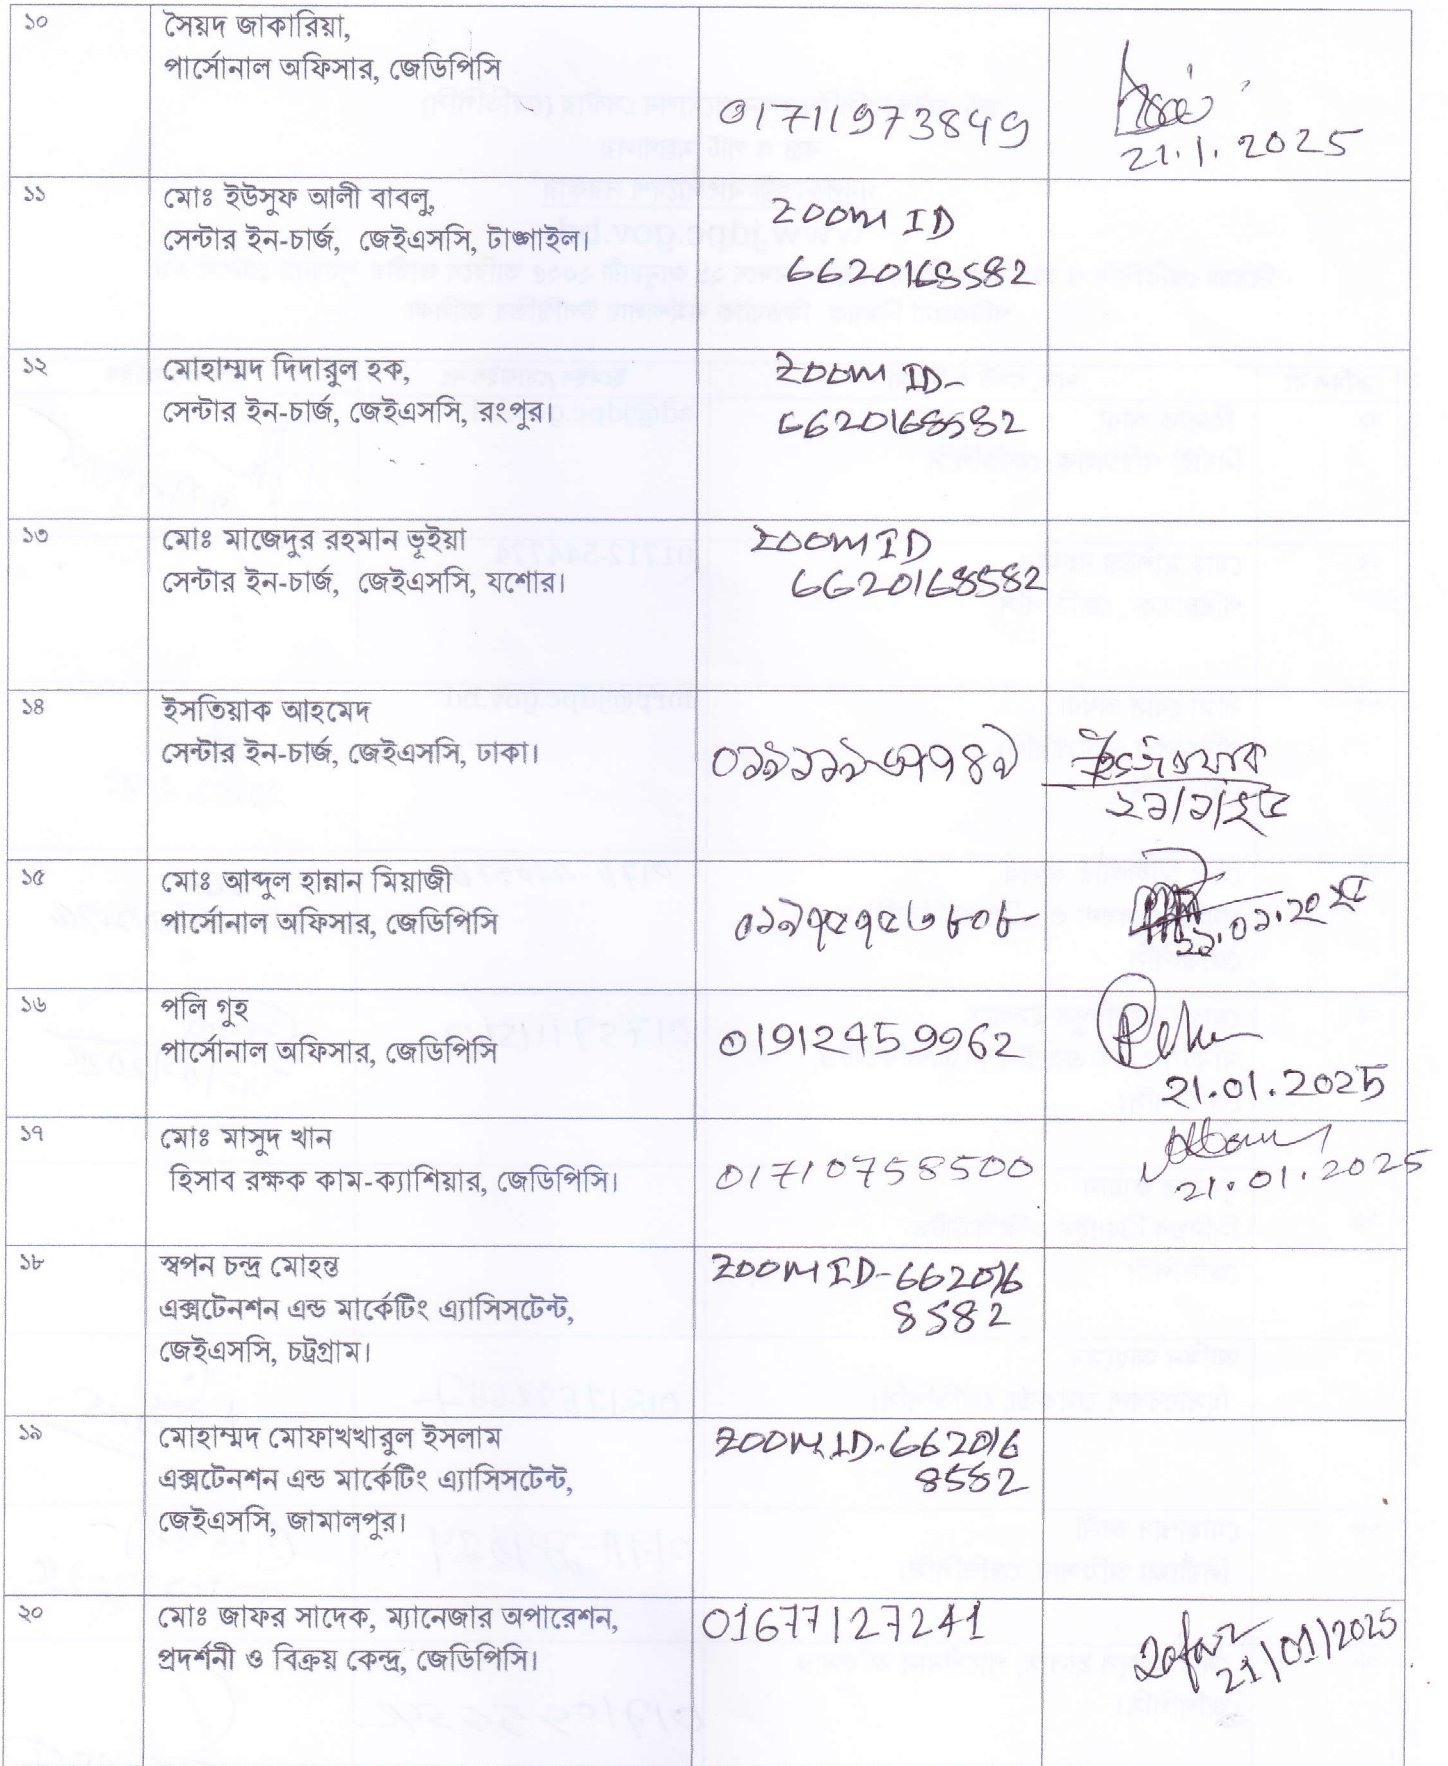 ১০
সৈয়দ জাকারিয়া,
পার্সোনাল অফিসার, জেডিপিসি
01711973849
21.1.2025
১১
মোঃ ইউসুফ আলী বাবলু,
সেন্টার ইন-চার্জ, জেইএসসি, টাঙ্গাইল।
ZOOM ID
6620168582
১২
মোহাম্মদ দিদারুল হক,
সেন্টার ইন-চার্জ, জেইএসসি, রংপুর।
ZOOM ID-
6620168582
১৩
মোঃ মাজেদুর রহমান ভূইয়া
সেন্টার ইন-চার্জ, জেইএসসি, যশোর।
ZOOM ID
6620168582
১৪
ইসতিয়াক আহমেদ
সেন্টার ইন-চার্জ, জেইএসসি, ঢাকা।
২১/১/২৫
১৫
মোঃ আব্দুল হান্নান মিয়াজী
পার্সোনাল অফিসার, জেডিপিসি
১৬
পলি গুহ
পার্সোনাল অফিসার, জেডিপিসি
01912459962
21.01.2025
১৭
মোঃ মাসুদ খান
হিসাব রক্ষক কাম-ক্যাশিয়ার, জেডিপিসি।
01710758500
21.01.2025
১৮
স্বপন চন্দ্র মোহন্ত
এক্সটেনশন এন্ড মার্কেটিং এ্যাসিসটেন্ট,
জেইএসসি, চট্রগ্রাম।
ZOOM ID-662016
8582
১৯
মোহাম্মদ মোফাখখারুল ইসলাম
এক্সটেনশন এন্ড মার্কেটিং এ্যাসিসটেন্ট,
জেইএসসি, জামালপুর।
ZOOM ID-662016
8582
২০
মোঃ জাফর সাদেক, ম্যানেজার অপারেশন,
প্রদর্শনী ও বিক্রয় কেন্দ্র, জেডিপিসি।
01677127241
21/01/2025